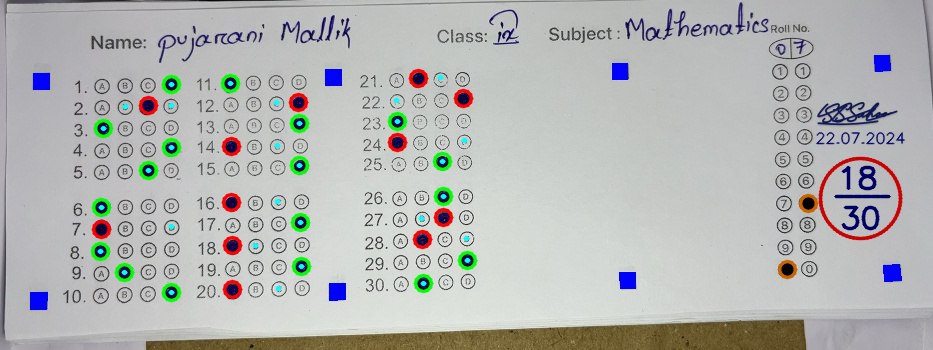 Name: pujarani Mallik Class: ix Subject : Mathematics Roll No.
0 7
1. A B C
2. A
3. B C D
4. A B C
5. A B D
6. B C D
7. B C
8. B C D
9. A C D
10. A B C
11. B C D
12. A B
13. A B C
14. B D
15. A B C
16. B D
17. A B C
18. C D
19. A B C
20. B D
21. A D
22. B C
23. B C D
24. B C
25. A B D
26. A B D
27. A D
28. A C
29. A B C
30. A C D
1 1
2 2
3 3
4 4
5 5
6 6
7
8 8
9 9
0
22.07.2024
18
30